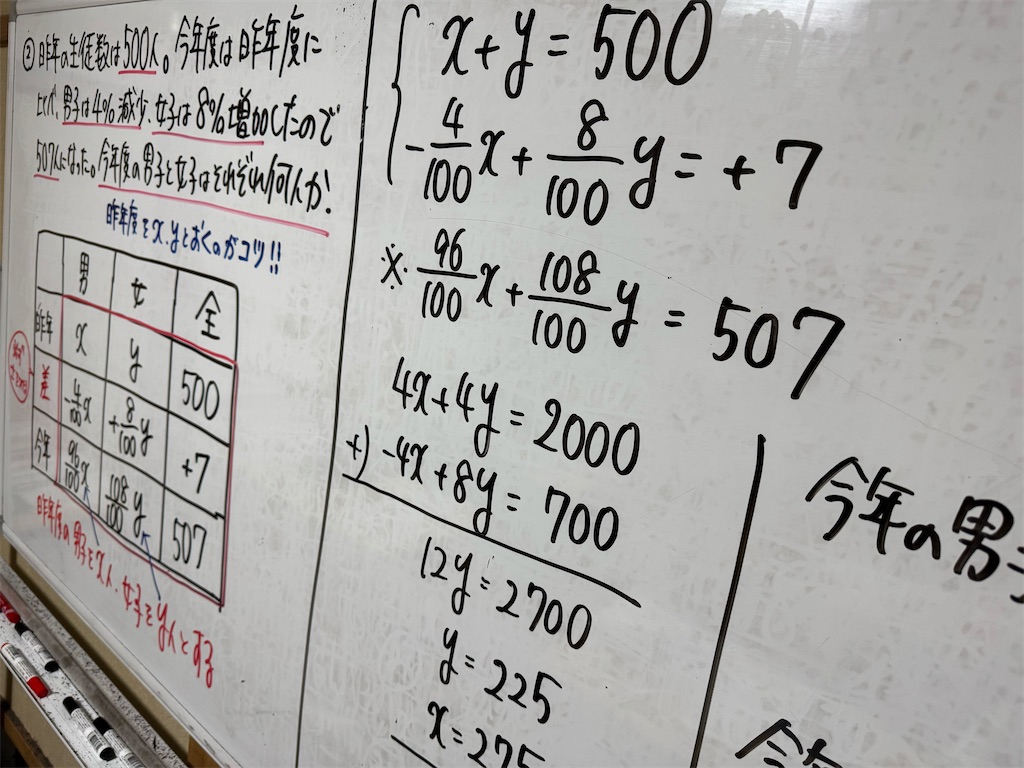 ② 昨年の生徒数は500人。今年度は昨年度に
比べ、男子は4%減少、女子は8%増加したので
507人になった。今年度の男子と女子はそれぞれ何人か!
昨年度をx、yとおくのがコツ!!
男 女 全
昨年 x y 500
差 -4/100x +8/100y +7
今年 96/100x 108/100y 507
昨年度の男子をx人、女子をy人とする
x+y=500
-4/100x+8/100y=+7
※ 96/100x+108/100y=507
4x+4y=2000
+) -4x+8y=700
12y=2700
y=225
x=275
今年の男子
今年